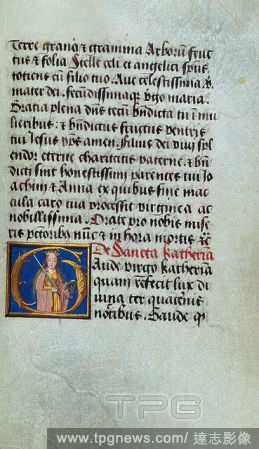 Terre grana & gramina Arboru fruc
tus & folia Stelle celi et angelici spus
totiens cu filio tuo Aue celestissima
mater dei fecundissima qz vgo maria.
Gratia plena dns tecu bndicta tu i mu
lieribus: & bndictus fructus ventris
tui Iesus xps amen. Filius dei viui spl
endor eterne charitatis paterne & bn
dicti sint honestissimi parentes tui Io
achim & Anna ex quibus sine mac
ula caro tua processit virginea ac
nobilissima. Orate pro nobis mise
ris pctoribz nuc & in hora mortis
De Sancta Katherina
Aude virgo katherina
quam refecit lux di
uina ter quaternis
noctibus. Gaude q
TPG
www.tpgnews.com/達志影像